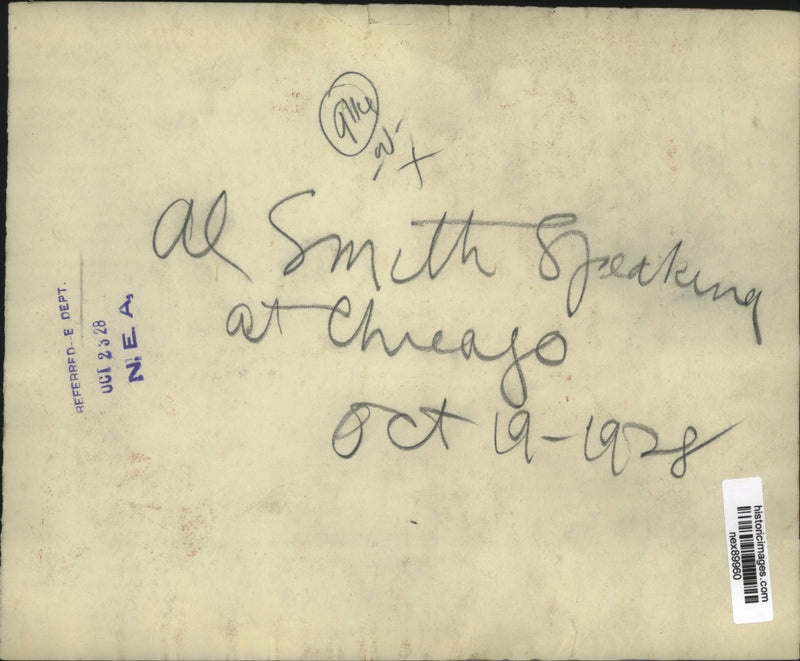 Al Smith Speaking
at Chicago
Oct 19-1928
REFERRED--E DEPT.
OCT 23 28
N. E. A.
historicimages.com
nex89960